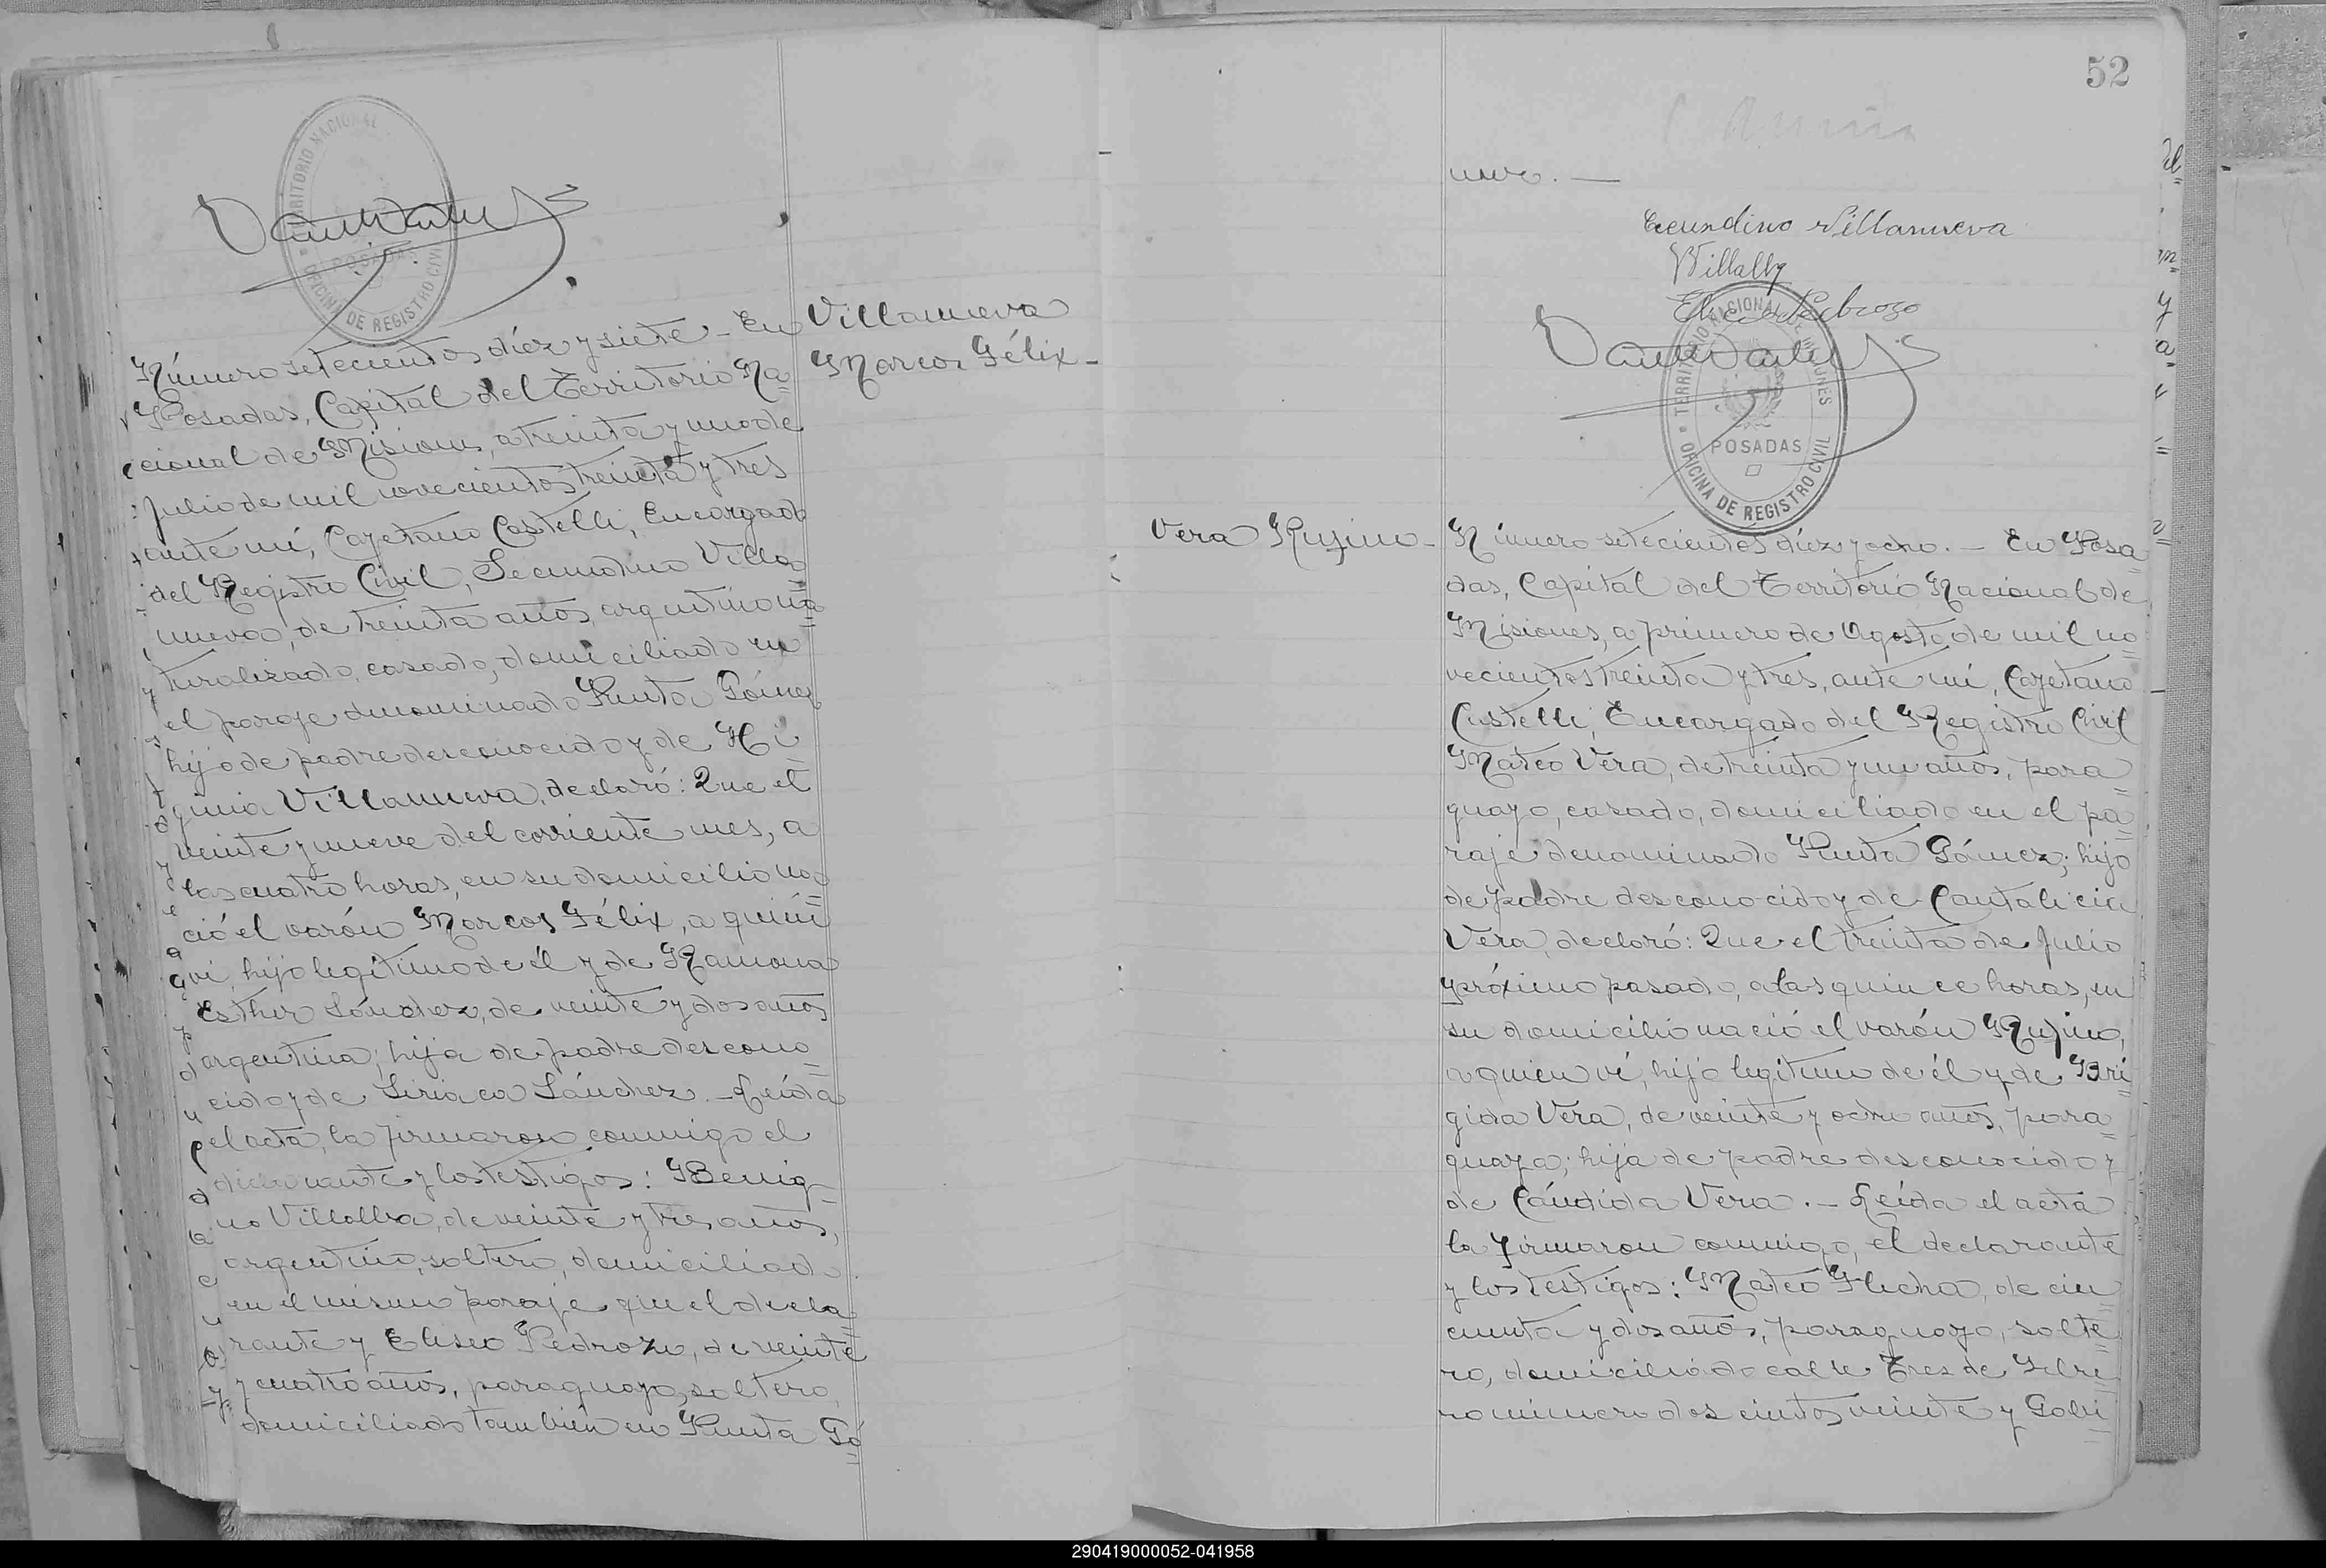 TERRITORIO NACIONAL
POSADAS
OFICINA DE REGISTRO CIVIL
Villanueva
Marcos Félix-
Número setecientos diez y siete - En
Posadas, Capital del Territorio Na=
cional de Misiones, a treinta y uno de
Julio de mil novecientos treinta y tres
ante mí, Cayetano Castelli, Encargado
del Registro Civil, Secundino Villa=
nueva, de treinta años, argentino na=
turalizado, casado, domiciliado en
el paraje denominado Punta Gómez
hijo de padre desconocido y de Hi=
ginia Villanueva, declaró: Que el
veinte y nueve del corriente mes, a
las cuatro horas, en su domicilio na=
ció el varón Marcos Félix, a quién
ví, hijo legítimo de él y de Ramona
Esther Sánchez, de veinte y dos años
argentina; hija de padre descono=
cido y de Siriaca Sánchez. - Leída
el acta, la firmaron conmigo el
declarante y los testigos: Benig=
no Villalba, de veinte y tres años,
argentino, soltero, domiciliado
en el mismo paraje que el decla=
rante y Eliseo Pedrozo, de veinte
y cuatro años, paraguayo, soltero,
domiciliado también en Punta Gó=
52
mez. —
Secundino Villanueva
BVillalba
Eliseo Pedrozo
TERRITORIO NACIONAL DE MISIONES
POSADAS
OFICINA DE REGISTRO CIVIL
Vera Rufino-
Número setecientos diez y ocho. - En Posa=
das, Capital del Territorio Nacional de
Misiones, a primero de Agosto de mil no=
vecientos treinta y tres, ante mí, Cayetano
Castelli, Encargado del Registro Civil
Mateo Vera, de treinta y un años, para=
guayo, casado, domiciliado en el pa=
raje denominado Punta Gómez; hijo
de padre desconocido y de Cantalicia
Vera, declaró: Que el treinta de Julio
próximo pasado, a las quince horas, en
su domicilio nació el varón Rufino,
a quien ví, hijo legítimo de él y de Brí=
gida Vera, de veinte y ocho años, para=
guaya; hija de padre desconocido y
de Cándida Vera. - Leída el acta
la firmaron conmigo, el declarante
y los testigos: Mateo Flecha, de cin=
cuenta y dos años, paraguayo, solte=
ro, domiciliado calle Tres de Febre=
ro número doscientos veinte y Gabi=
290419000052-041958